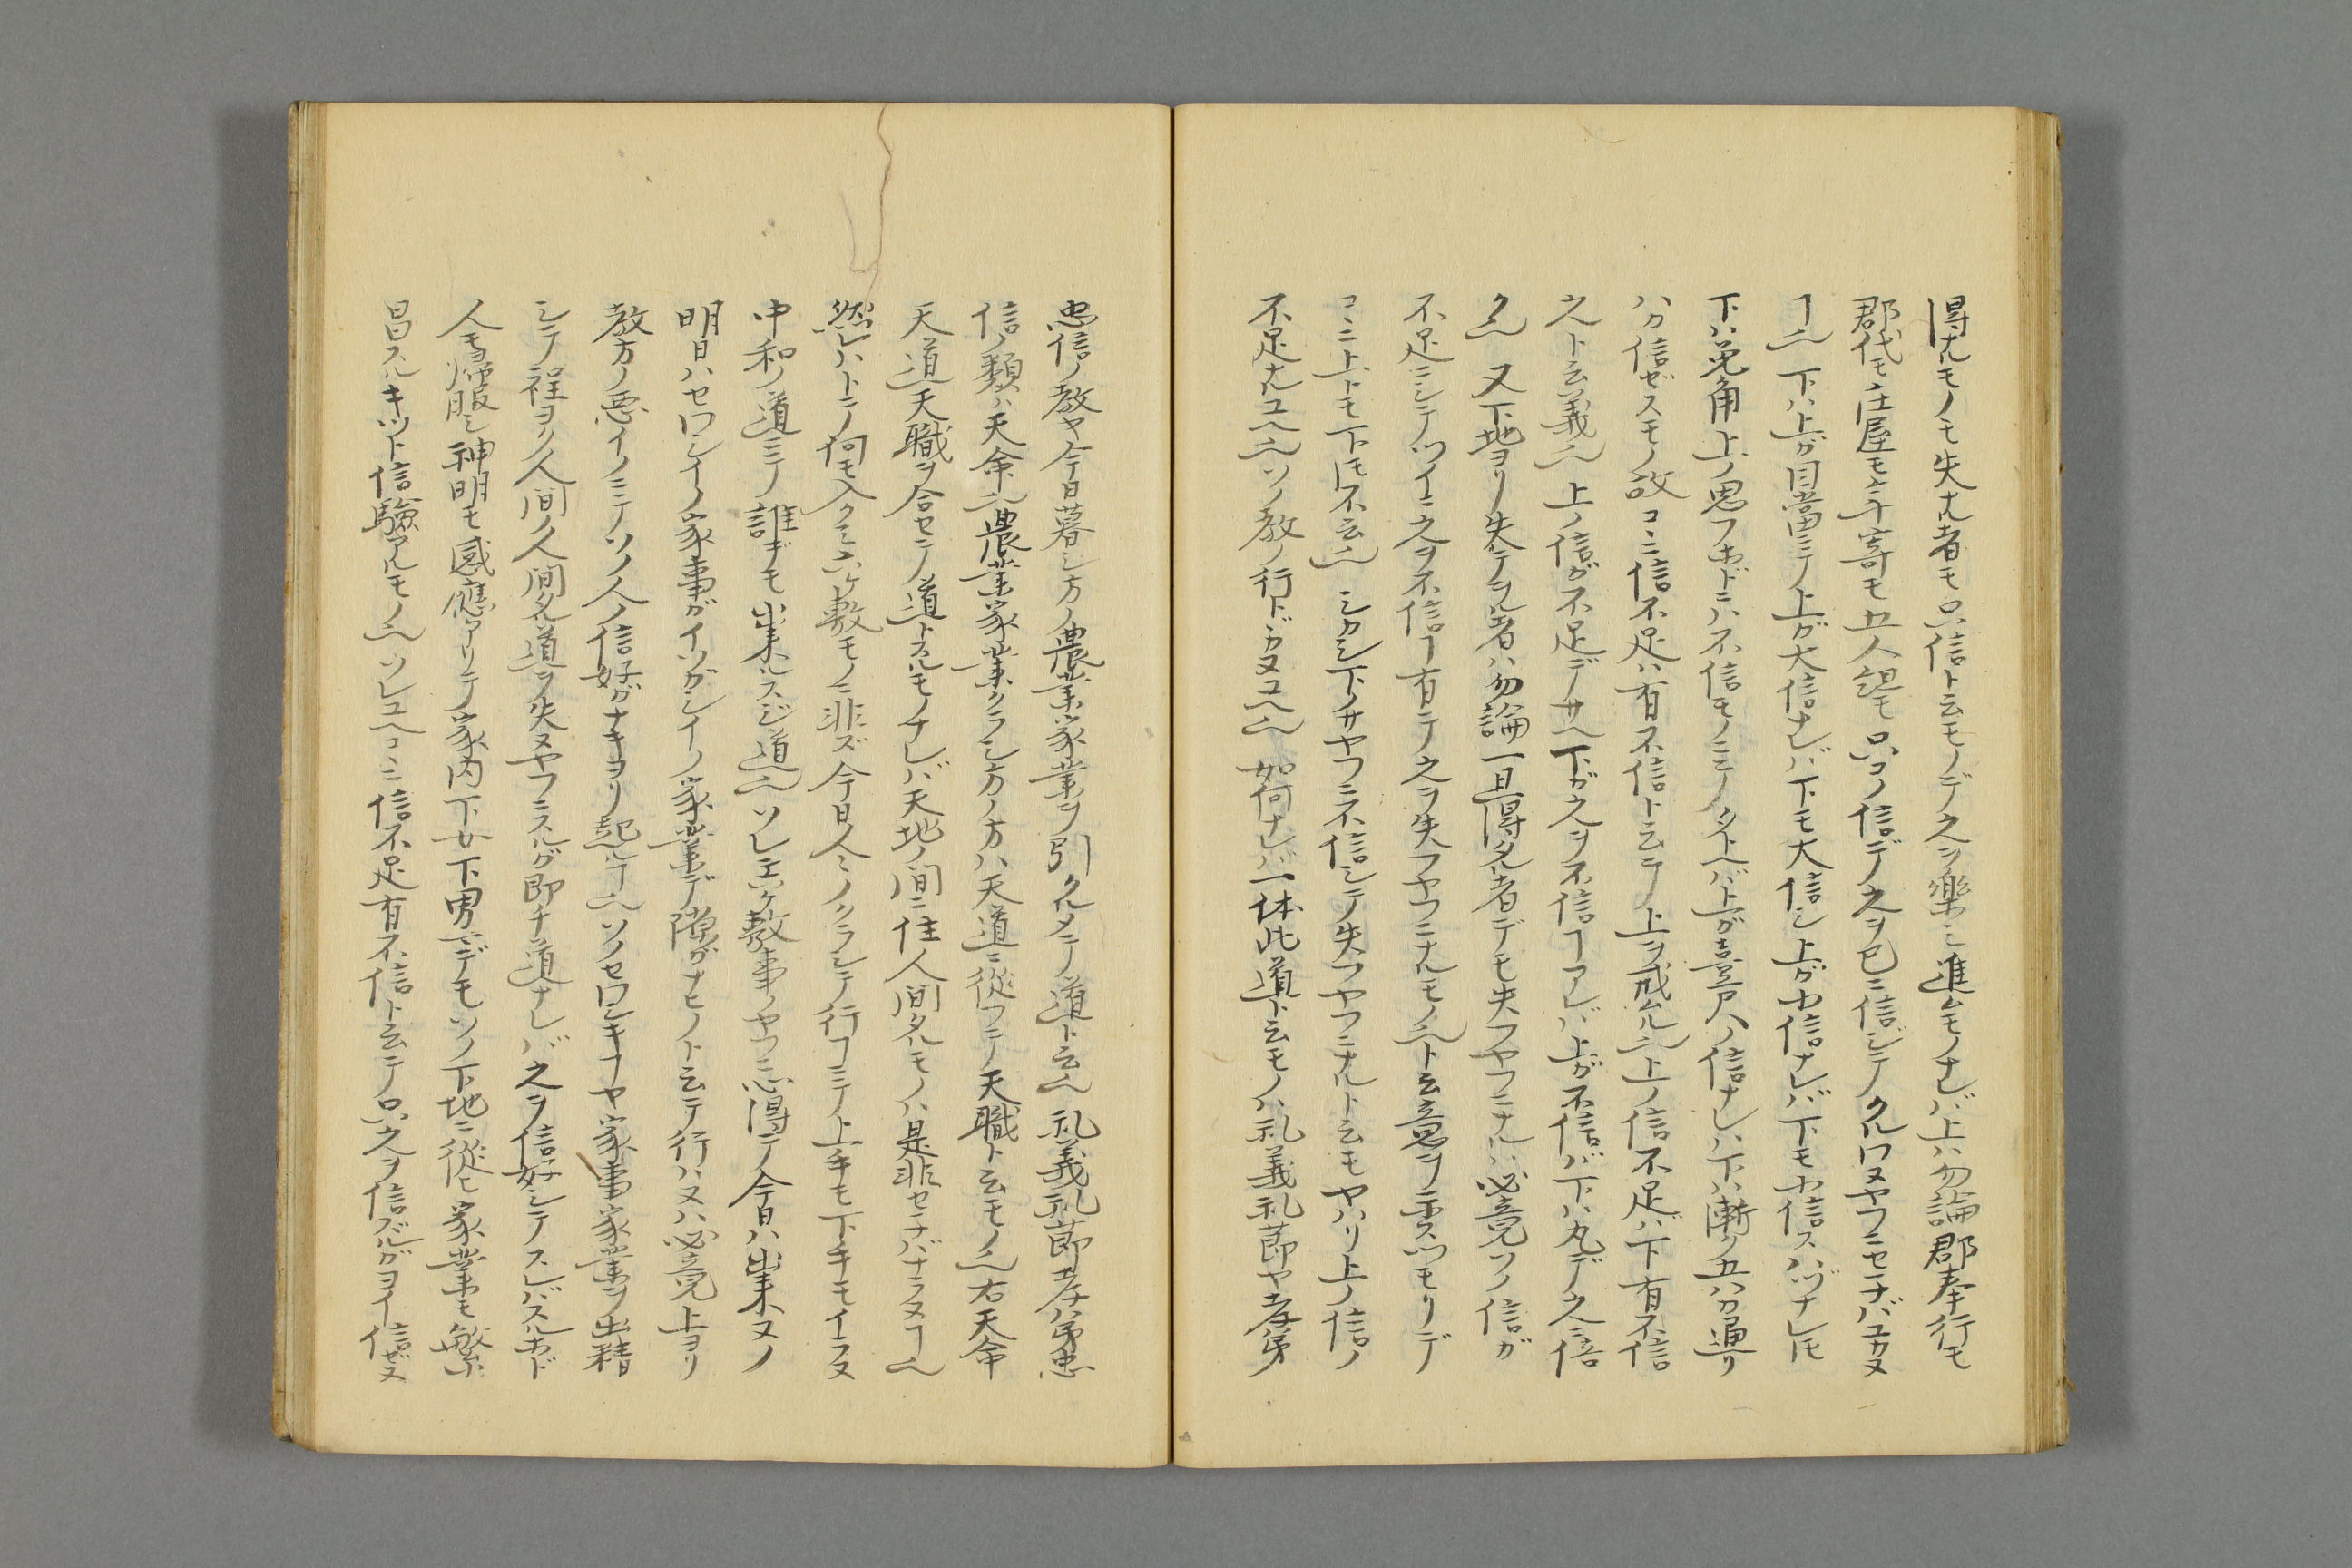 得ルモノモ失ル者モ只信ト云モノデ之ヲ樂ミ進ムモノナレバ上ハ勿論郡奉行モ
郡代モ庄屋モ年寄モ五人組モ只コノ信デ之ヲ已ニ信ジテクルワヌヤフニセ子バユカヌ
ヿ也下ハ上ガ目當ニテノ上ガ大信ナレバ下モ大信シ上ガ中信ナレバ下モ中信スハヅナレ𪜈
下ハ兎角上ノ思フホドニハ不信モノニテノタトヘバ上ガ壱尺ノ信ナレハ下ハ漸ク五六分通リ
ハカ信ゼスモノ故コヽニ信不足ハ有不信ト云テノ上ヲ戒ムル也上ノ信不足バ下有不信
之ト云義也上ノ信ガ不足デサヘ下ガ之ヲ不信ヿアレバ上ガ不信バ下ハ丸デ之ニ倍
ク也又下地ヨリ失テヲル者ハ勿論一旦得タル者デモ失フヤフニナルハ必竟ソノ信ガ
不足ニシテツイニ之ヲ不信ヿ有テ之ヲ失フヤフニナルモノ也ト云意ヲ示スツモリデ
コヽニ上トモ下𪜈不云也シカシ下ノサヤフニ不信シテ失フヤフニナルト云モヤハリ上ノ信ノ
不足ナルユヘ也ソノ教ノ行ドカヌユヘ也如何ナレバ一体此道ト云モノハ礼義礼節ヤ孝弟
忠信ノ教ヤ今日暮シ方ノ農業家業ヲ引クルメテ道ト云也礼義礼節孝弟忠
信ノ類ハ天命也農業家業クラシ方ノ方ハ天道ニ從フテノ天職ト云モノ也右天命
天道天職ヲ合セテノ道トスルモノナレバ天地ノ間ニ住人間タルモノハ是非セ子バナラヌヿ也
然レハトテノ何モ入クミ六ケ敷モノニ非ズ今日人々ノクラシテ行フミテノ上手モ下手モイラヌ
中和ノ道ミテノ誰デモ出来ルスジ道也ソレエ六ケ敷事ノヤフニ心得テノ今日ハ出来ヌノ
明日ハセワシイノ家事ガイソガシイノ家業デ隙ガナヒノト云テノ行ハヌハ必竟上ヨリ
教方ノ悪イノミテノソノ人ノ信好ガナキヨリ起ルヿ也ソノセワシキヿヤ家事家業ヲ出精
シテノ程ヨク人間ノ人間タル道ヲ失ヌヤフニスルガ即チ道ナレバ之ヲ信好シテノスレバスルホド
人モ帰服シ神明モ感應アリテノ家内下女下男マデモソノ下地ニ從ヒ家業モ繁
昌スルキツト信驗アルモノ也ソレユヘコヽニ信不足有不信ト云テノ只之ヲ信ズルガヨイ信ゼヌ